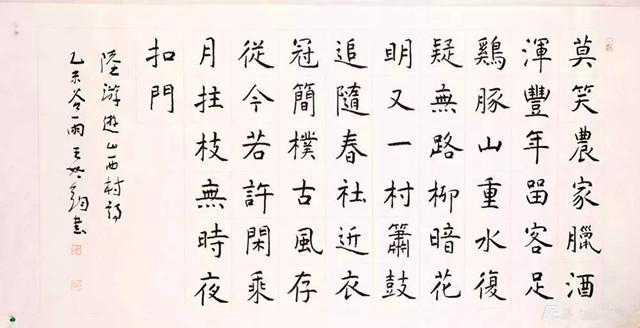 莫笑農家臘酒
渾豐年留客足
鷄豚山重水復
疑無路柳暗花
明又一村簫鼓
追隨春社近衣
冠簡樸古風存
從今若許閑乘
月拄枝無時夜
扣門
陸游遊山西村詩
乙未谷雨王鈞書